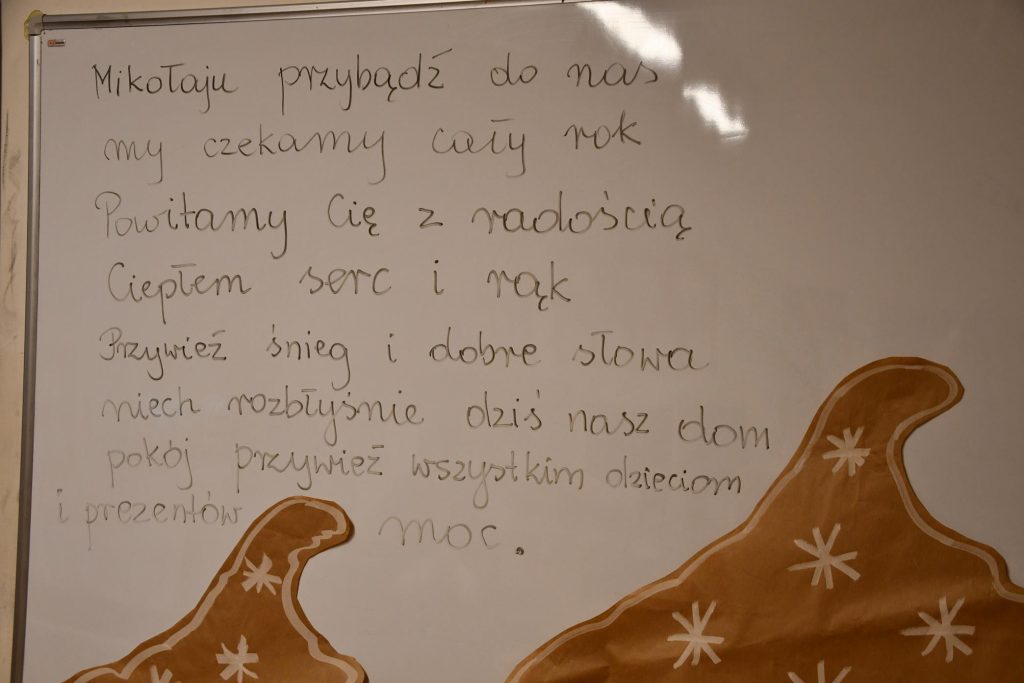 Mikołaju przybądź do nas
my czekamy cały rok
Powitamy Cię z radością
Ciepłem serc i rąk
Przywieź śnieg i dobre słowa
niech rozbłyśnie dziś nasz dom
pokój przywieź wszystkim dzieciom
i prezentów moc.